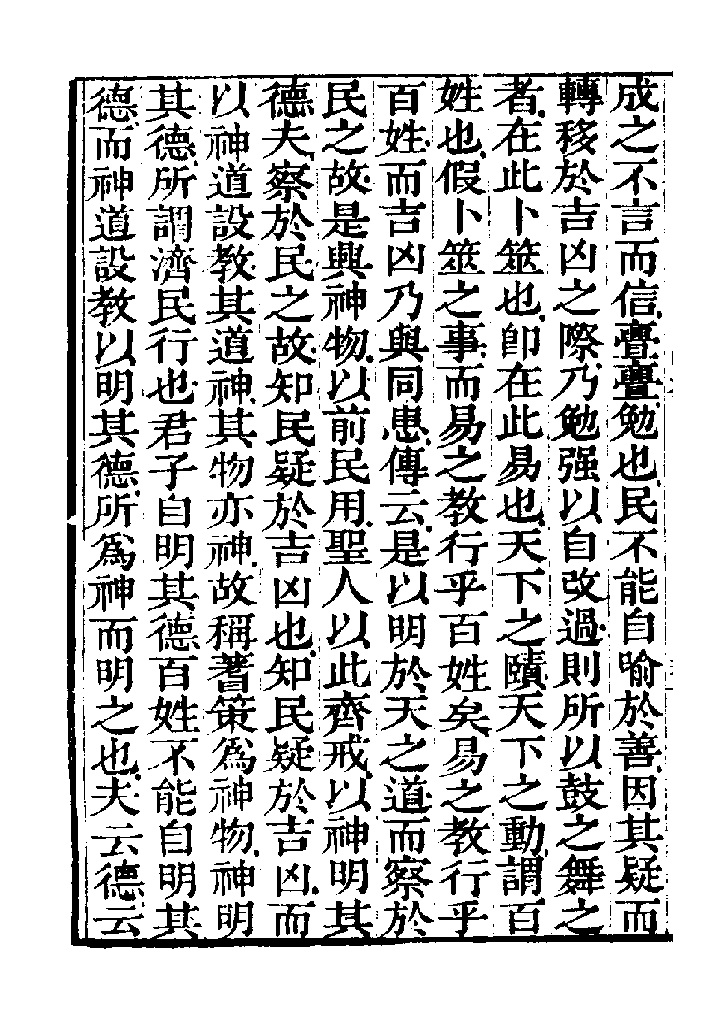 成之不言而信亹亹勉也民不能自喻於善因其疑而
轉移於吉凶之際乃勉强以自改過則所以鼓之舞之
者在此卜筮也卽在此易也天下之賾天下之動謂百
姓也假卜筮之事而易之教行乎百姓矣易之教行乎
百姓而吉凶乃與同患傳云是以明於天之道而察於
民之故是興神物以前民用聖人以此齊戒以神明其
德夫察於民之故知民疑於吉凶也知民疑於吉凶而
以神道設教其道神其物亦神故稱蓍策爲神物神明
其德所謂濟民行也君子自明其德百姓不能自明其
德而神道設教以明其德所爲神而明之也夫云德云